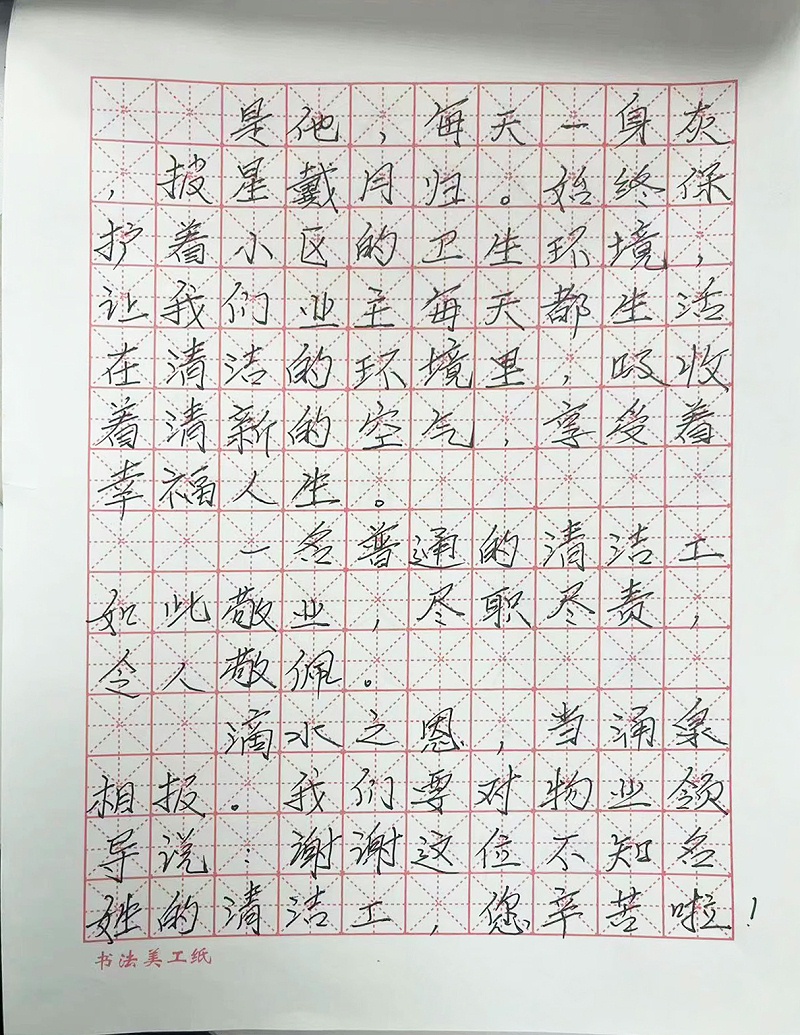 是他，每天一身灰
，披星戴月归。始终保
护着小区的卫生环境，
让我们业主每天都生活
在清洁的环境里，吸收
着清新的空气，享受着
幸福人生。
一名普通的清洁工
如此敬业，尽职尽责，
令人敬佩。
滴水之恩，当涌泉
相报。我们要对物业领
导说：谢谢这位不知名
姓的清洁工，您辛苦啦！
书法美工纸